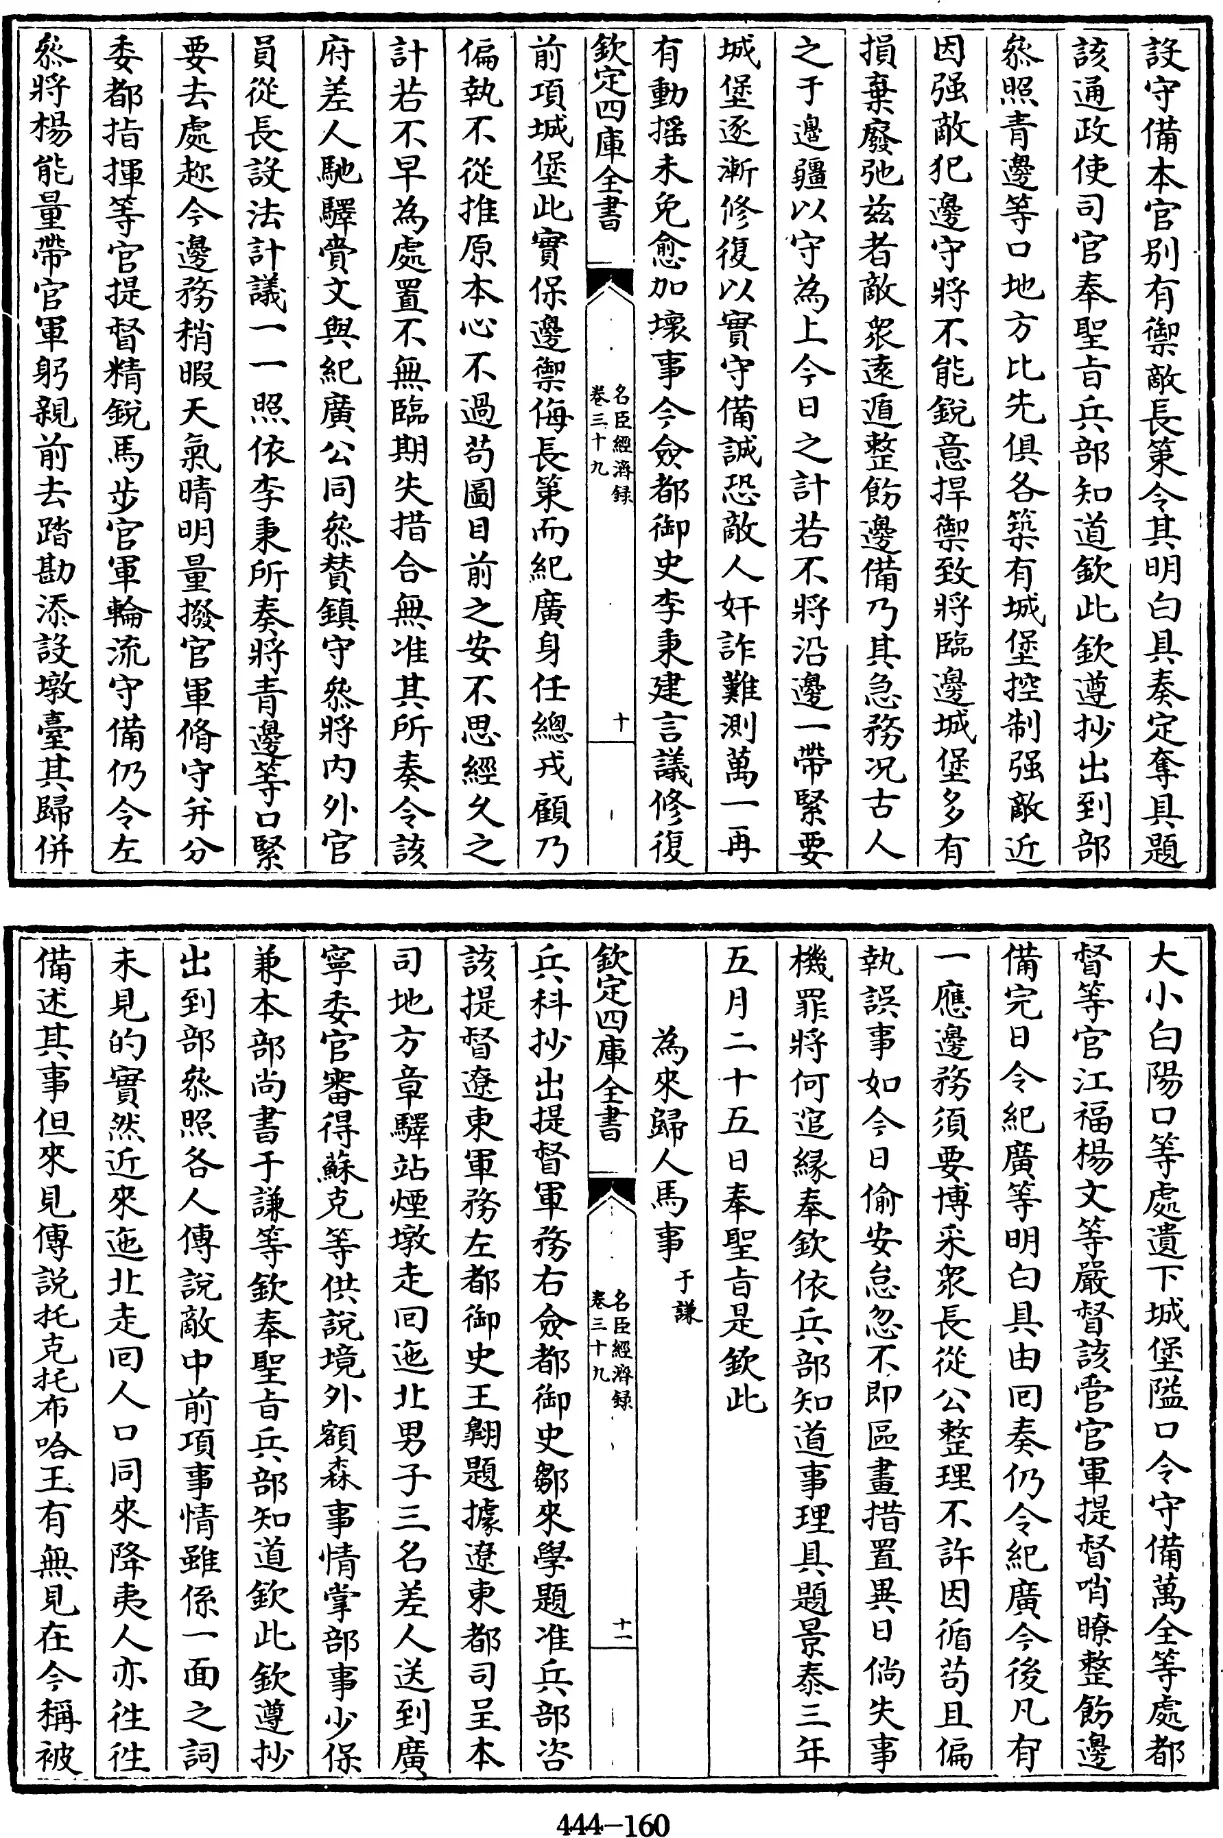 設守備本官别有禦敵長策令其明白具奏定奪具題
該通政使司官奉聖旨兵部知道欽此欽遵抄出到部
叅照青邊等口地方比先俱各築有城堡控制强敵近
因强敵犯邊守將不能銳意捍禦致將臨邊城堡多有
損棄廢弛兹者敵衆逺遁整飭邊備乃其急務况古人
之于邊疆以守為上今日之計若不將沿邊一帶緊要
城堡逐漸修復以實守備誠恐敵人奸詐難測萬一再
有動揺未免愈加壞事今僉都御史李秉建言議修復
欽定四庫全書
名臣經濟録
卷三十九
十
前項城堡此實保邊禦侮長策而紀廣身任總戎顧乃
偏執不從推原本心不過苟圖目前之安不思經久之
計若不早為處置不無臨期失措合無准其所奏令該
府差人馳驛賫文與紀廣公同叅賛鎮守叅將内外官
員從長設法計議一一照依李秉所奏將青邊等口緊
要去處趂今邊務稍暇天氣晴明量撥官軍脩守并分
委都指揮等官提督精銳馬步官軍輪流守備仍令左
叅將楊能量帶官軍躬親前去踏勘添設墩臺其歸併
大小白陽口等處遺下城堡隘口令守備萬全等處都
督等官江福楊文等嚴督該管官軍提督哨瞭整飭邊
備完日令紀廣等明白具由囘奏仍令紀廣今後凡有
一應邊務須要博采衆長從公整理不許因循苟且偏
執誤事如今日偷安怠忽不即區畫措置異日倘失事
機罪將何逭縁奉欽依兵部知道事理具題景泰三年
五月二十五日奉聖旨是欽此
為來歸人馬事 于謙
欽定四庫全書
名臣經濟録
卷三十九
十一
兵科抄出提督軍務右僉都御史鄒來學題准兵部咨
該提督遼東軍務左都御史王翺題據遼東都司呈本
司地方章驛站煙墩走囘迤北男子三名差人送到廣
寧委官審得蘇克等供說境外額森事情掌部事少保
兼本部尚書于謙等欽奉聖旨兵部知道欽此欽遵抄
出到部叅照各人傳說敵中前項事情雖係一面之詞
未見的實然近來迤北走囘人口同來降夷人亦徃徃
備述其事但來見傳說托克托布哈王有無見在今稱被
444-160